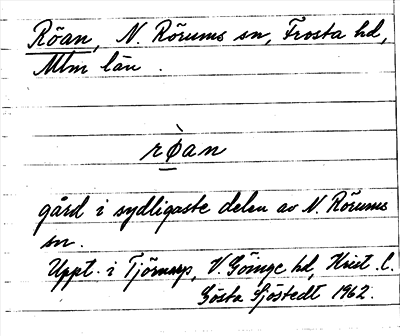 Röan, N. Rörums sn, Frosta hd,
Mlm län.
rø̀an
gård i sydligaste delen av N. Rörums
sn.
Uppt. i Tjörnarp, V. Göinge hd, Krist. l.
Gösta Sjöstedt 1962.